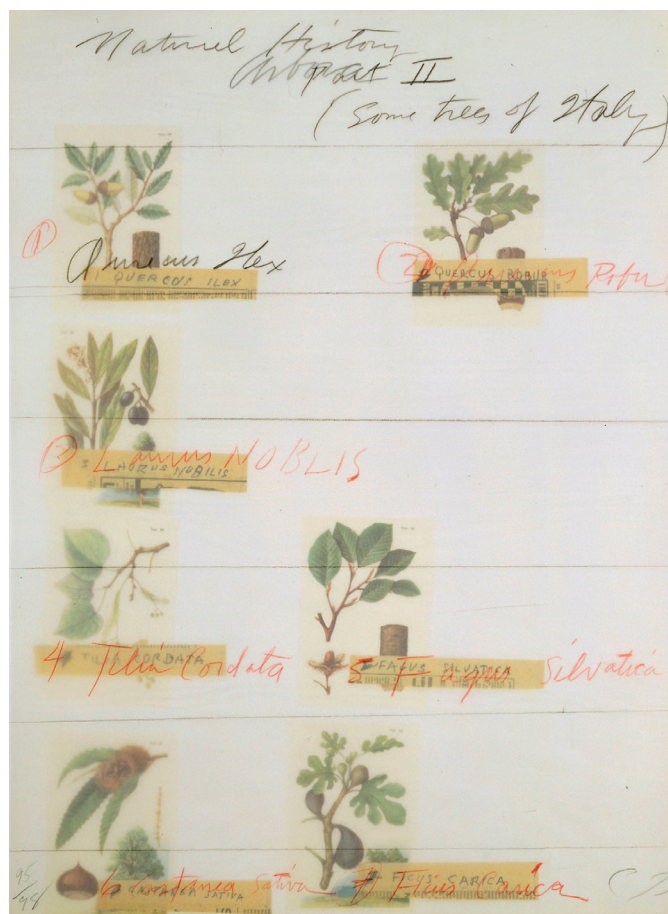 Natural History
Part II
(Some trees of Italy)
①
Quercus Ilex
1 QUERCUS ILEX
②
Robur
QUERCUS ROBUR
③ Laurus NOBLIS
3 LAURUS NOBILIS
4 Tilia Cordata
TILIA CORDATA
5 Fagus Silvatica
FAGUS SILVATICA
6 Castanea Sativa
CASTANEA SATIVA
7 Ficus Carica
FICUS CARICA
95/98
CT